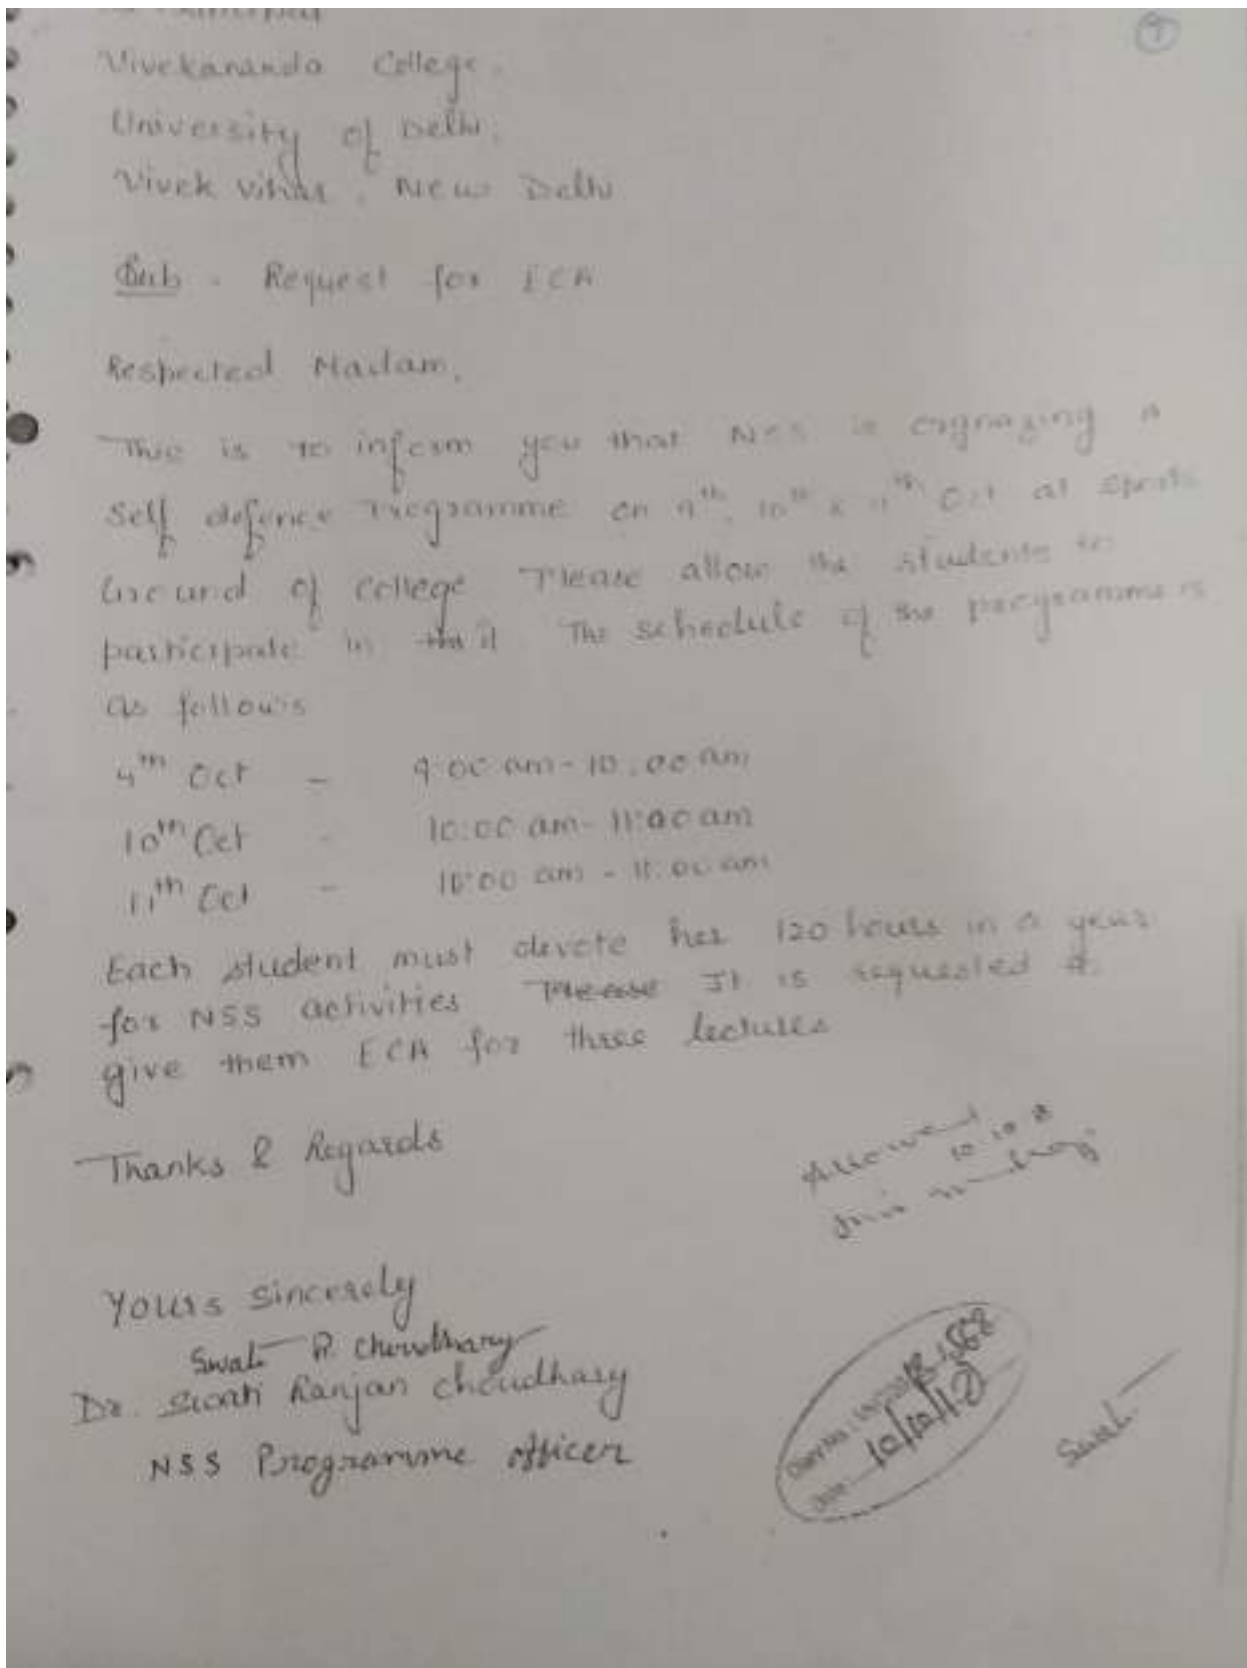 Vivekananda College.
University of Delhi.
Vivek Vihar, New Delhi
Sub. Request for ECA
Respected Madam,
This is to inform you that NSS is orgnazing a
Self defence Programme on 9th, 10th & 11th Oct at Sports
Ground of College Please allow the students to
participate in the it. The schedule of the programme is
as follows
9th Oct - 9:00 am - 10:00 am
10th Oct - 10:00 am - 11:00 am
11th Oct - 10:00 am - 11:00 am
Each student must devote her 120 hours in a year
for NSS activities Please It is requested to
give them ECA for three lectures
Thanks & Regards
Allowed
10.10.8
Yours Sincerely
Swati R. Choudhary
Dr. Swati Ranjan Choudhary
NSS Programme Officer
Diary No.
Date 10/10/18
Swati